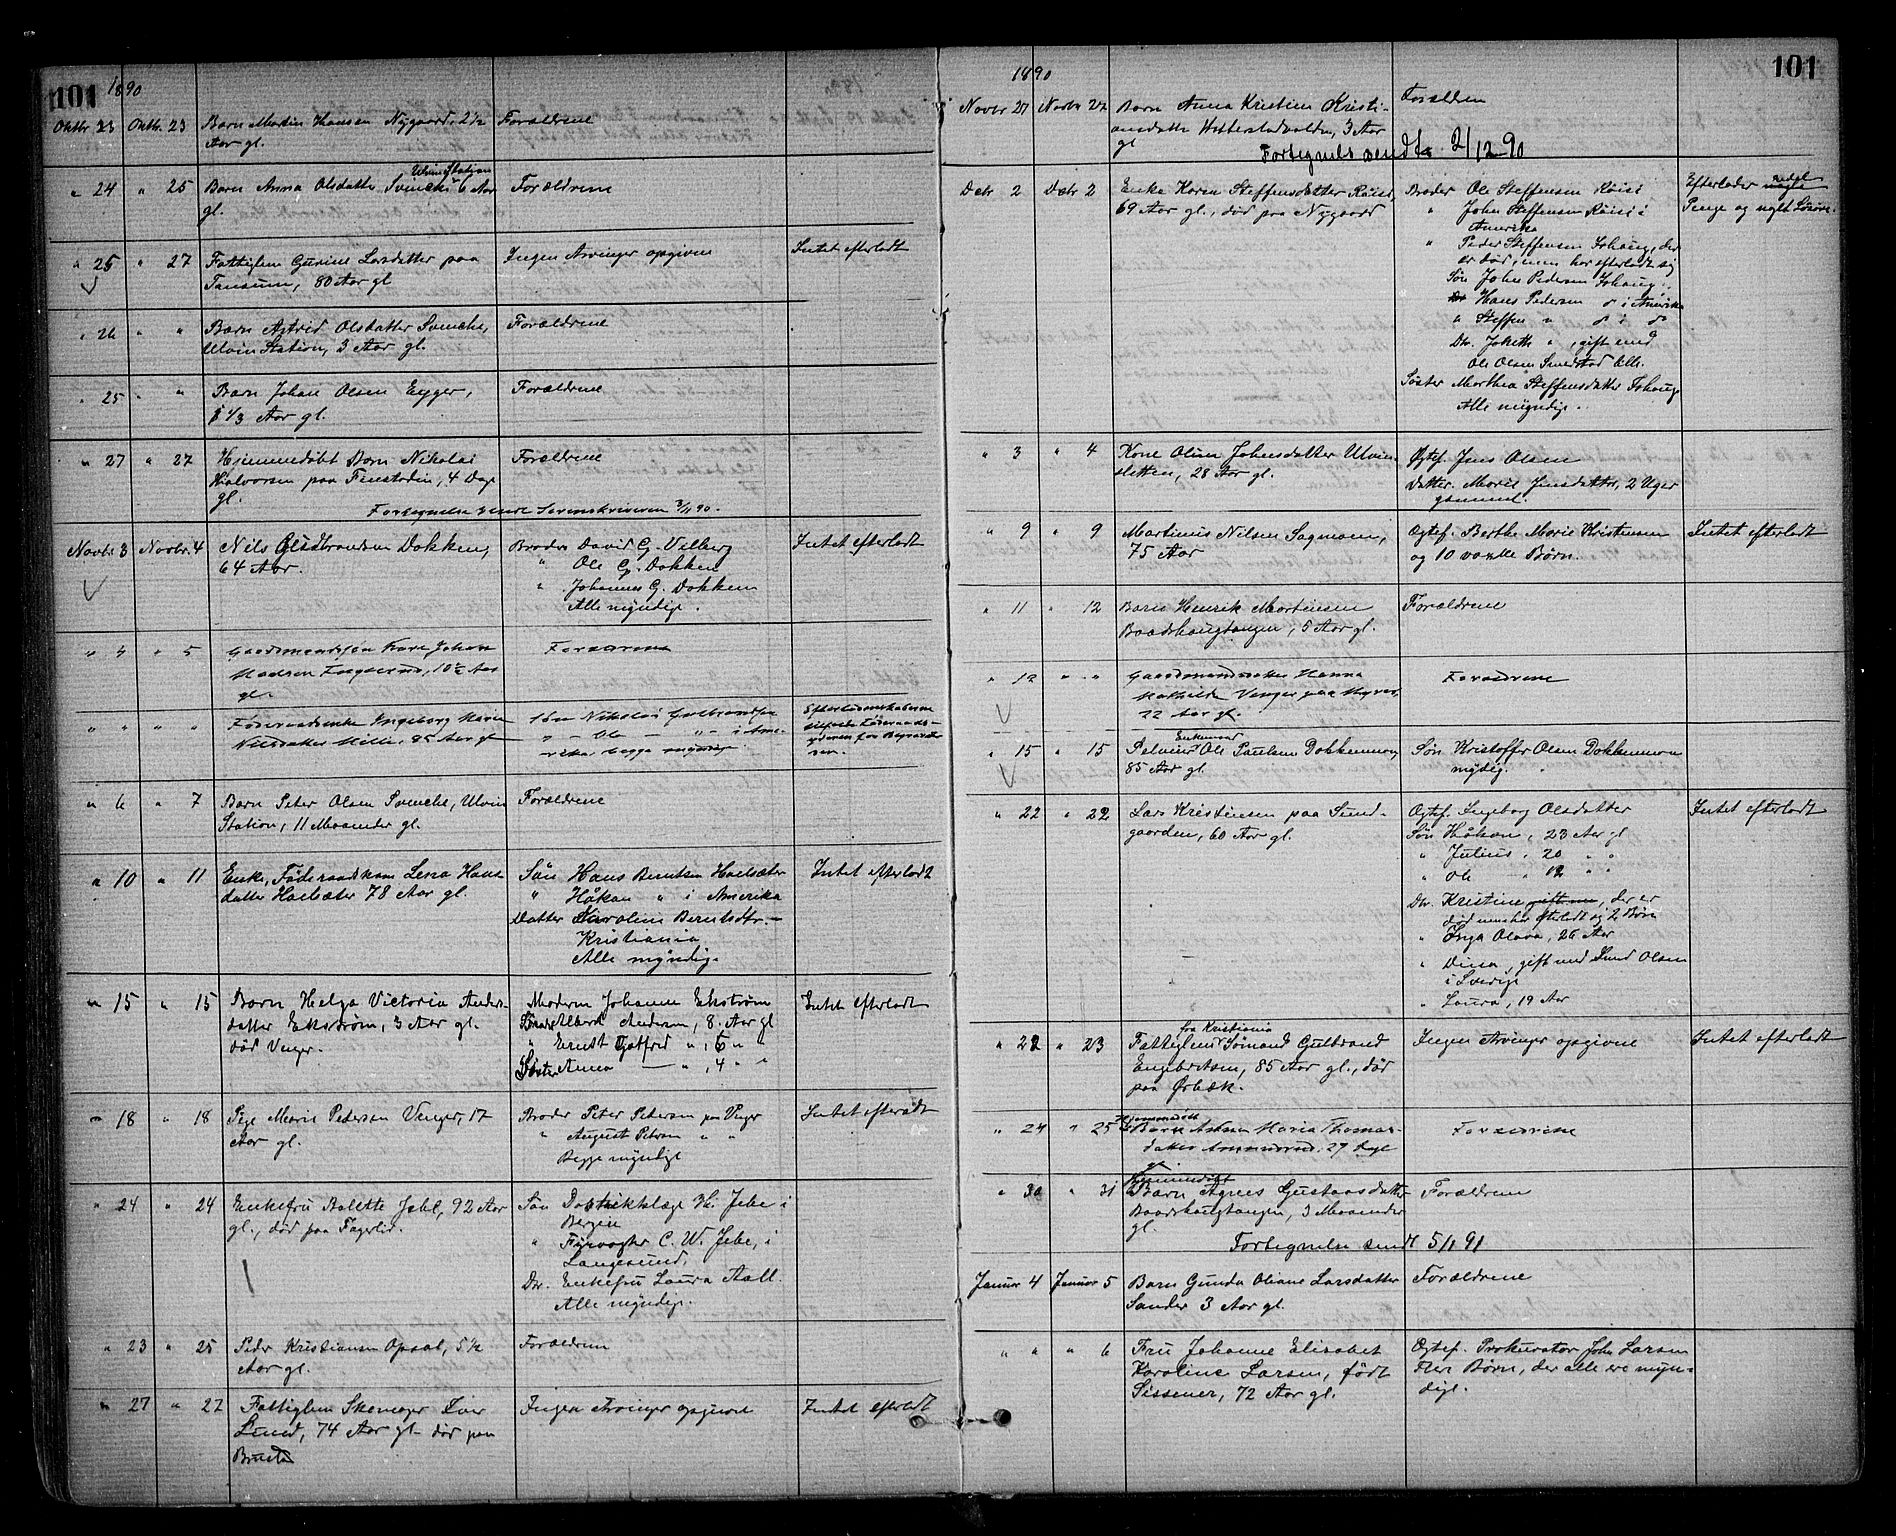 101
1890
Oktbr 23 Oktbr. 23 Barn Martin Hansen Nygaard, 2½ Forældrene
Aar gl.
Ulvin Station
" 24 " 25 Barn Anna Olsdatter Svencke 6 Aar Forældrene
gl.
" 25 " 27 Fattiglem Gurine Larsdatter paa Ingen Arvinger opgivne Intet efterladt
Tansum, 80 Aar gl
" 26 " " Barn Astrid Olsdatter Svencke, Forældrene
Ulvin Station, 3 Aar gl.
" 25 " " Barn Johan Olsen Egger, Forældrene
1⅓ Aar gl.
" 27 " 27 Hjemmedøbt Barn Nikolai Forældrene
Halvorsen paa Finstadin, 4 Dage
gl.
Fortegnelse sendt Sorenskriveren 3/11 90.
Novbr. 3 Novbr. 4 Nils Gulbrandsen Dokken, Broder David G. Vilberg Intet efterladt
64 Aar. " Ole G. Dokken
" Johannes G. Dokken
Alle myndige.
" 4 " 5 Gaardmandssøn Johan Forældrene
Madsen 10½ Aar
gl.
" " " " Føderaadsenke Ingeborg Marie Søn Nikolai Gulbrandsen
Nilsdatter Mille, 85 Aar gl " – Ole – " – i Ame-
rika, begge myndige.
" 6 " 7 Barn Peter Olsen Svencke, Ulvin Forældrene
Station, 11 Maaneder gl.
" 10 " 11 Enke, Føderaadskone Lena Hans- Søn Hans Berntsen Hoelsæter Intet efterladt
datter Hoelsæter 78 Aar gl. " Håkon " i Amerika
Datter Karoline Berntsdtr. –
Kristiania
Alle myndige
" 15 " 15 Barn Helga Victoria Anders- Moderen Johanne Ekstrøm Intet efterladt
datter Ekstrøm, 3 Aar gl. Broder Albert Andersen, 8 Aar gl
død Venger. " Ernst Gotfred " , 6 " "
Søster Anna — " , 4 " "
" 18 " 18 Pige Marie Pedersen Venger, 17 Broder Peter Petersen paa Venger Intet efterladt
Aar gl. " August Petersen " "
Begge myndige
" 24 " 24 Enkefru Bolette Jebe, 92 Aar Søn Distriktslæge H. Jebe i
gl., død paa Fagerlid. Bergen
" Fyrvogter C. W. Jebe, i
Langesund,
Dtr. Enkefru Laura Aall.
Alle myndige.
" 23 " 25 Peder Kristiansen Opsal, 5½ Forældrene
Aar gl.
" 27 " 27 Fattiglem Skomager Iver Ingen Arvinger opgivne Intet efterladt
Lund, 74 Aar gl – død paa
Brustad
101
1890
Novbr 27 Novbr 27 Barn Anna Kristine Kristi- Forældrene
ansdatter 3 Aar
gl
Fortegnelse sendt 2/12 90
Decbr 2 Decbr 2 Enke Karen Steffensdatter Røise, Broder Ole Steffensen Røise Efterlader
69 Aar gl., død paa Nygaard " John Steffensen Røise i Penge og noget Løsøre.
Amerika
" Peder Steffensen Johaug, der
er død, men har efterladt sig
Søn John Pedersen Johaug.
" Hans Pedersen do i Amerika
" Steffen " do i do
Dtr. " , gift med
Ole Olsen Smestad
Søster Marthea Steffensdatter Johaug
Alle myndige.
" 3 " 4 Kone Oline Johnsdatter Ulvin- Ægtef. Jens Olsen
sletten, 28 Aar gl. Datter. Marie Jensdatter, 2 Uger
gammel
" 9 " 9 Martinus Nilsen Sagmoen, Ægtef. Berthe Marie Kristensen Intet efterladt
75 Aar og 10 voxne Børn.
" 11 " 12 Barn Henrik Mortensen Forældrene
Baadshaugtangen, 5 Aar gl.
" 12 " " Gaardmandsdatter Hanna Forældrene
Mathilde Venger paa Myrer,
22 Aar gl.
Enkemand
" 15 " 15 Ole Paulsen Dokkenmoen, Søn Kristoffer Olsen Dokkenmoen
85 Aar gl. myndig.
" 22 " 22 Lars Kristensen paa Sund- Ægtef. Ingeborg Olsdatter Intet efterladt
gaarden, 60 Aar gl. Søn Håkon, 23 Aar gl
" Julius, 20 " "
" Ole – 12 " "
Dtr. Kristine, der er
død men har efterladt sig 2 Børn
" Inga Olava, 26 Aar
" Dina, gift med Lund Olsen
i Sverige
" Laura, 19 Aar
fra Kristiania
" 22 " 23 Fattiglem Sømand Gulbrand Ingen Arvinger opgivne Intet efterladt
Engebretsen, 85 Aar gl., død
paa Ørbæk.
Hjemmedøbt
" 24 " 25 Barn Maria Thomas- Forældrene
datter Ammerud, 27 Dage
gl.
Hjemmedøbt
" 30 " 31 Barn Agnes Gustavsdatter Forældrene
Baadshaugtangen, 3 Maaneder
gl.
Fortegnelse sendt 5/1 91
Januar 4 Januar 5 Barn Gunda Oliane Larsdatter Forældrene
Sander 3 Aar gl.
" " " 6 Fru Johanne Elisabet Ægtef. Prokurator John Larsen
Karoline Larsen, født Flere Børn, der alle ere myn-
Sissener, 72 Aar gl. dige.